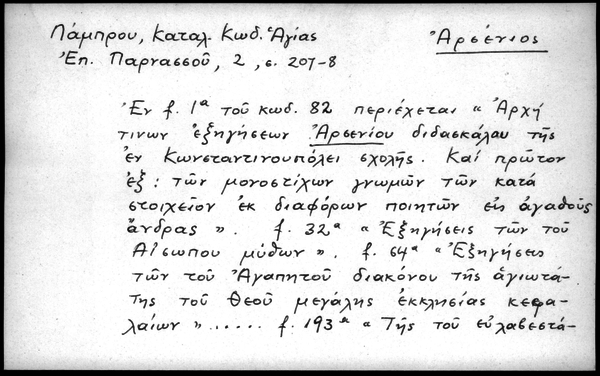 Λάμπρου, Καταλ. Κωδ. Ἁγίας
Ἀρσένιος
Ἐπ. Παρνασσοῦ, 2, σ. 207-8
Ἐν f. 1α τοῦ κωδ. 82 περιέχεται « Ἀρχή
τινων ἐξηγήσεων Ἀρσενίου διδασκάλου τῆς
ἐν Κωνσταντινουπόλει σχολῆς. Καί πρῶτον
ἐξ: τῶν μονοστίχων γνωμῶν τῶν κατά
στοιχεῖον ἐκ διαφόρων ποιητῶν εἰς ἀγαθούς
ἄνδρας ». f. 32α « Ἐξηγήσεις τῶν τοῦ
Αἰσώπου μύθων ». f. 64α « Ἐξηγήσεις
τῶν τοῦ Ἀγαπητοῦ διακόνου τῆς ἁγιωτά-
της τοῦ Θεοῦ μεγάλης ἐκκλησίας κεφα-
λαίων » ..... f. 193α « Τῆς τοῦ εὐλαβεστά-